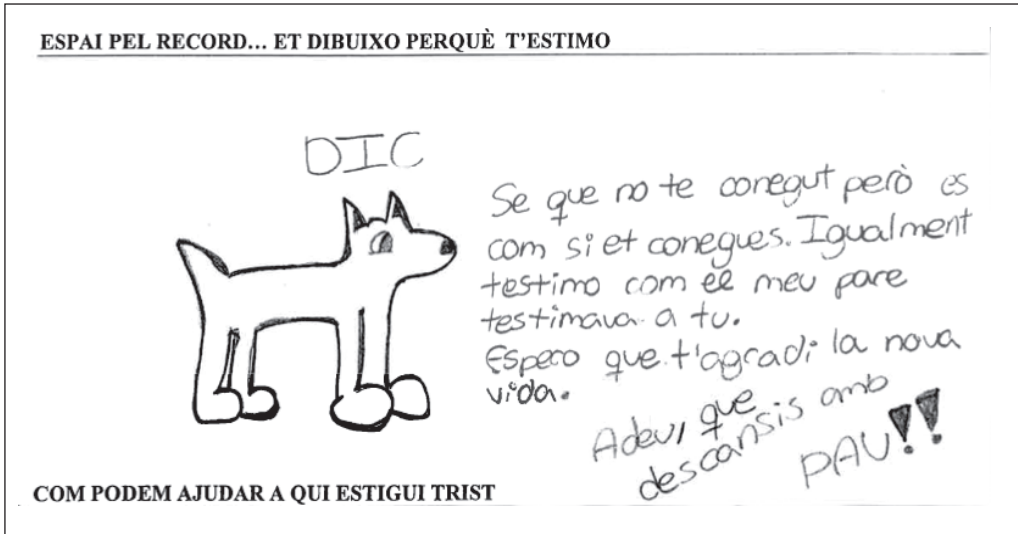 ESPAI PEL RECORD... ET DIBUIXO PERQUÈ T'ESTIMO
DIC
Se que no te conegut però es
com si et conegues. Igualment
testimo com el meu pare
testimava a tu.
Espero que t'agradi la nova
vida.
Adeu, que
descansis amb
PAU!!
COM PODEM AJUDAR A QUI ESTIGUI TRIST